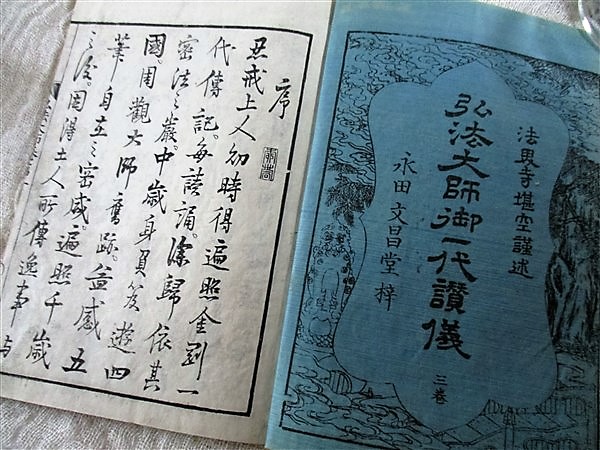 法界寺堪空謹述
弘法大師御一代讚儀
三巻
永田文昌堂梓
序
忍戒上人幼時得遍照金剛一
代傳記。每讀誦。深歸依其
密法之嚴。中歲身負笈遊四
國。周觀大師舊跡。益感五
筆自在之密感。遍照千歲
之後。因得土人所傳逸事与